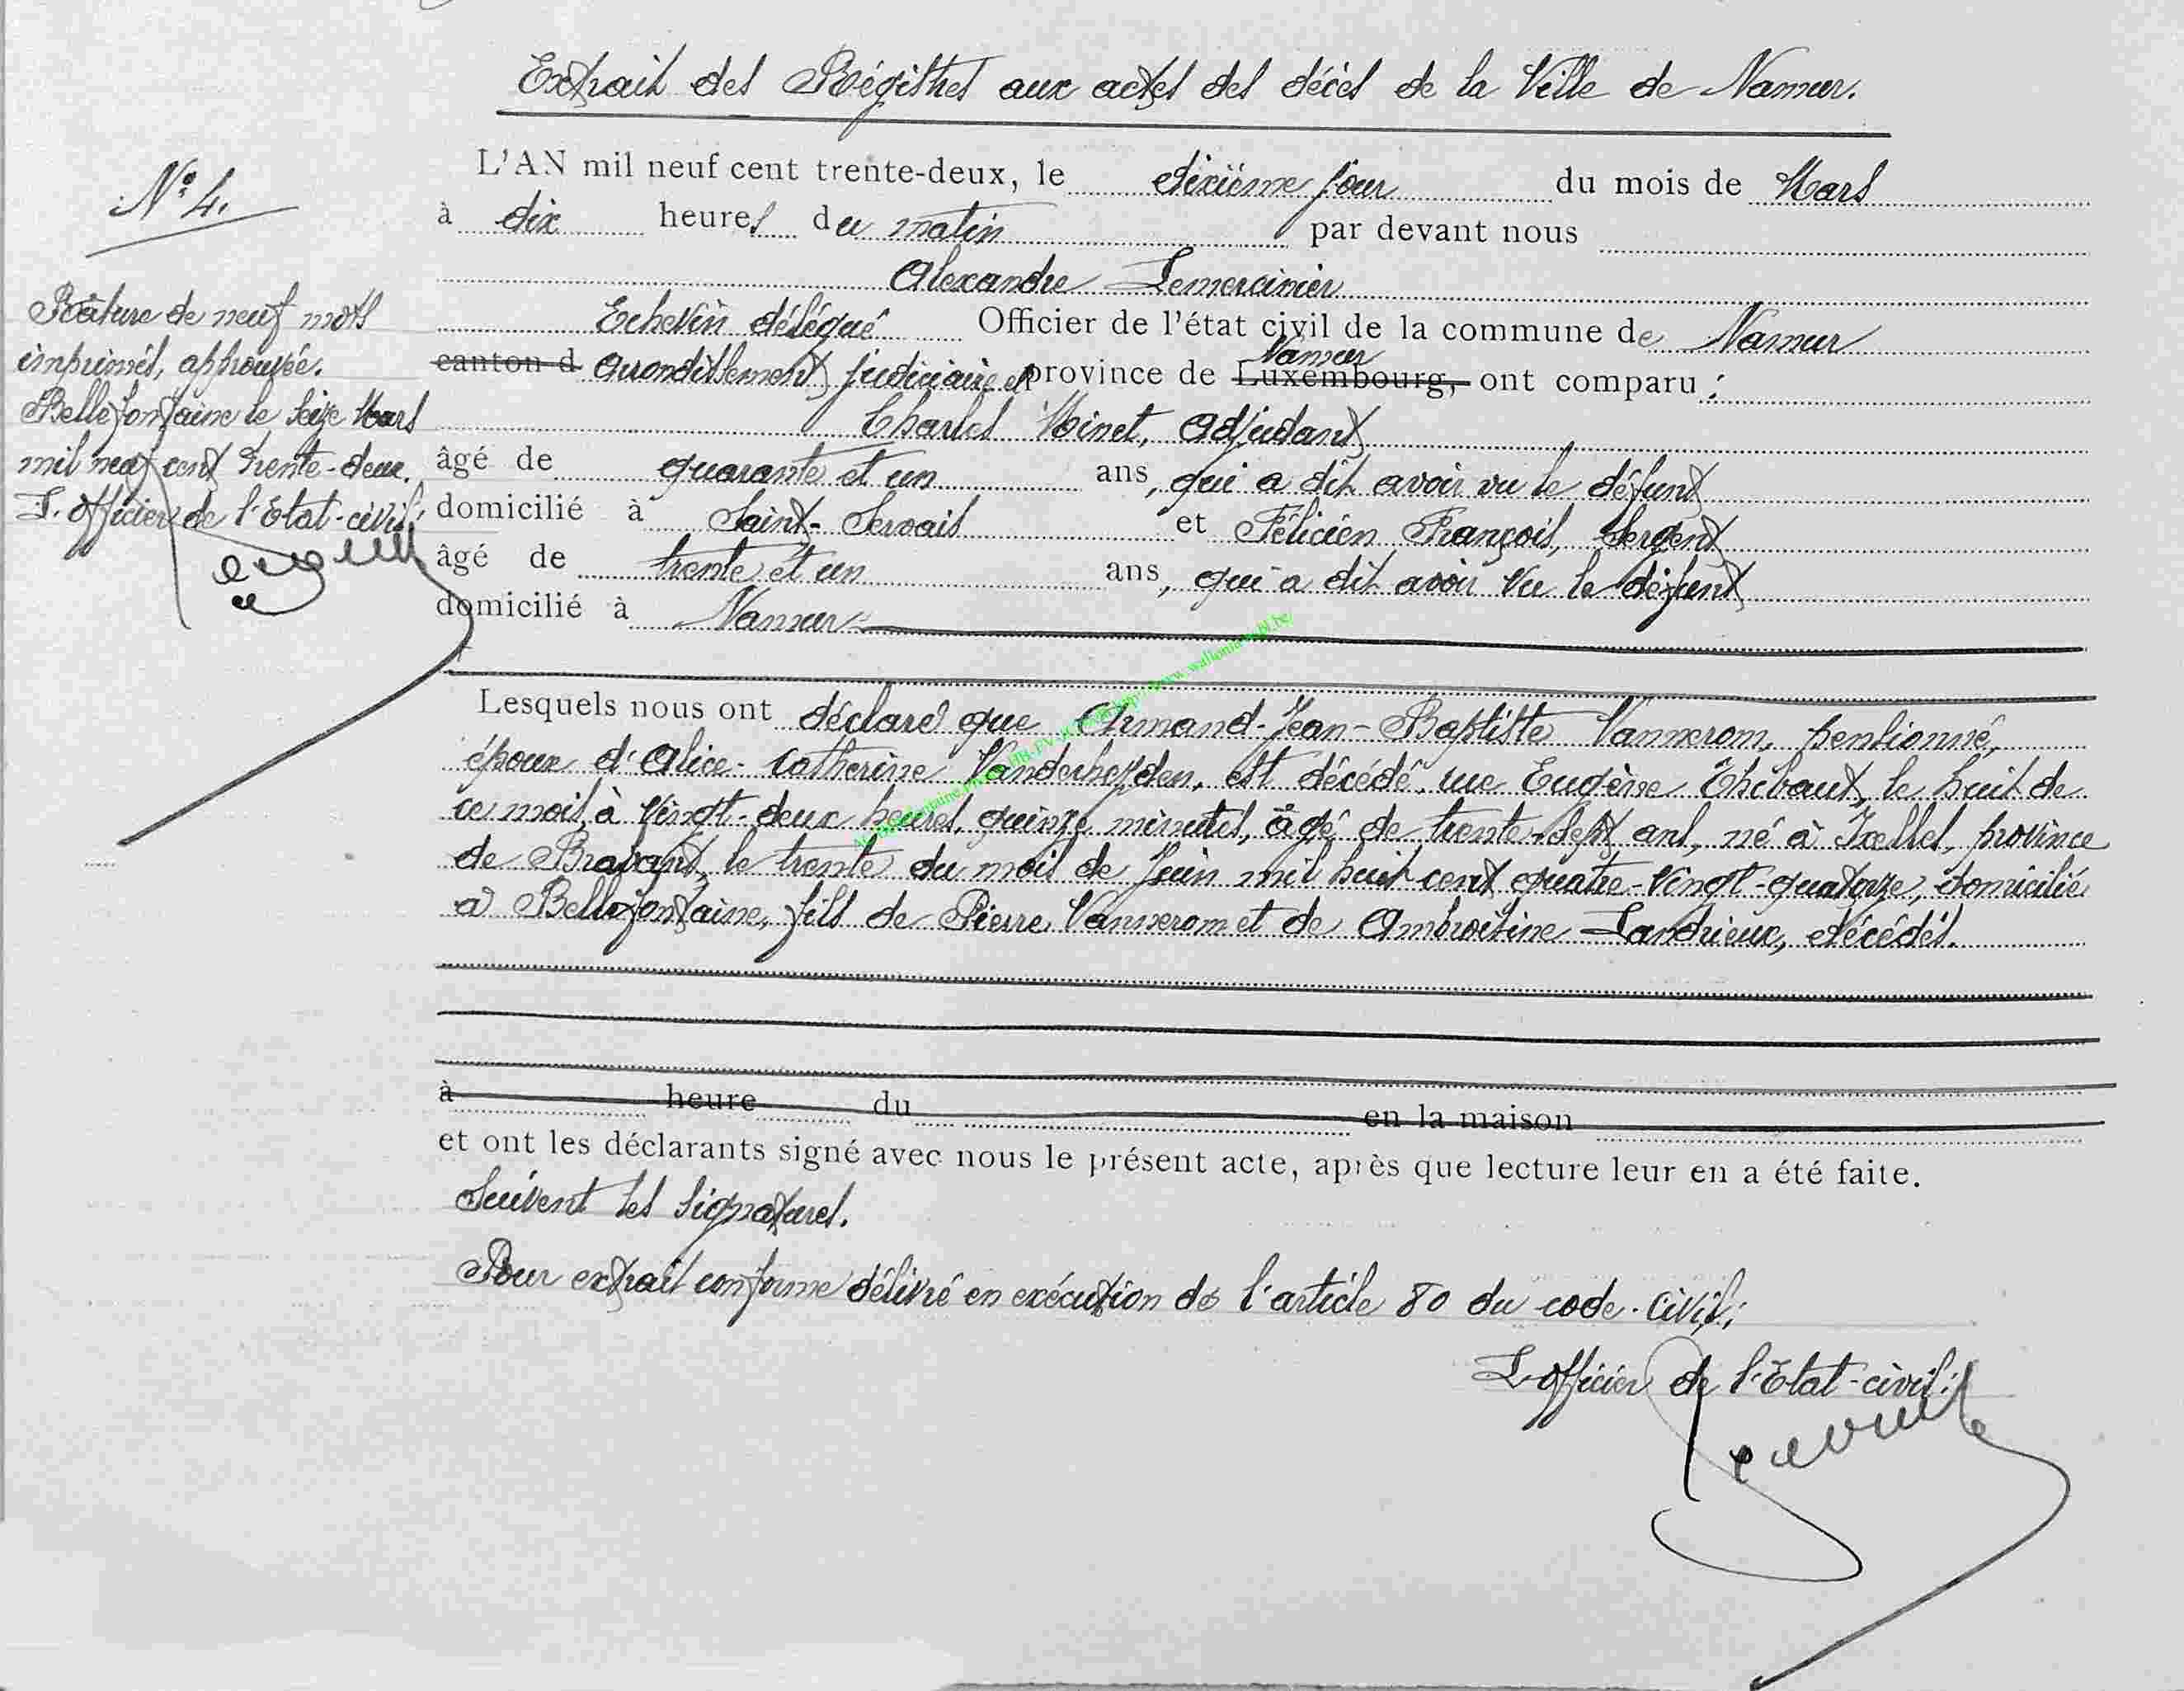 Extrait des Régistres aux actes des décès de la Ville de Namur.
N° 4.
Râture de neuf mots
imprimés, approuvée.
Bellefontaine le seize Mars
mil neuf cent trente-deux.
L'officier de l'Etat-civil,
L'AN mil neuf cent trente-deux, le dixième jour du mois de Mars
à dix heures du matin par devant nous
Alexandre Lemercinier
Echevin délégué Officier de l'état civil de la commune de Namur
canton d arrondissement judiciaire et province de Luxembourg, Namur ont comparu :
Charles Minet, Adjudant
âgé de quarante et un ans, qui a dit avoir vu le défunt
domicilié à Saint-Servais et Félicien François, Sergent
âgé de trente et un ans, qui a dit avoir vu le défunt
domicilié à Namur
Lesquels nous ont déclaré que Armand-Jean-Baptiste Vannerom, pensionné,
époux d'Alice-Catherine Vanderheyden, est décédé, rue Eugène Thibaut, le huit de
ce mois, à vingt-deux heures, quinze minutes, âgé de trente-sept ans, né à Ixelles, province
de Brabant, le trente du mois de Juin mil huit cent quatre-vingt-quatorze, domicilié
à Bellefontaine, fils de Pierre Vannerom et de Ambroisine Landrieux, décédés.
à heure du en la maison
et ont les déclarants signé avec nous le présent acte, après que lecture leur en a été faite.
Suivent les signatures.
Pour extrait conforme délivré en exécution de l'article 80 du code-civil;
L'officier de l'Etat-civil: